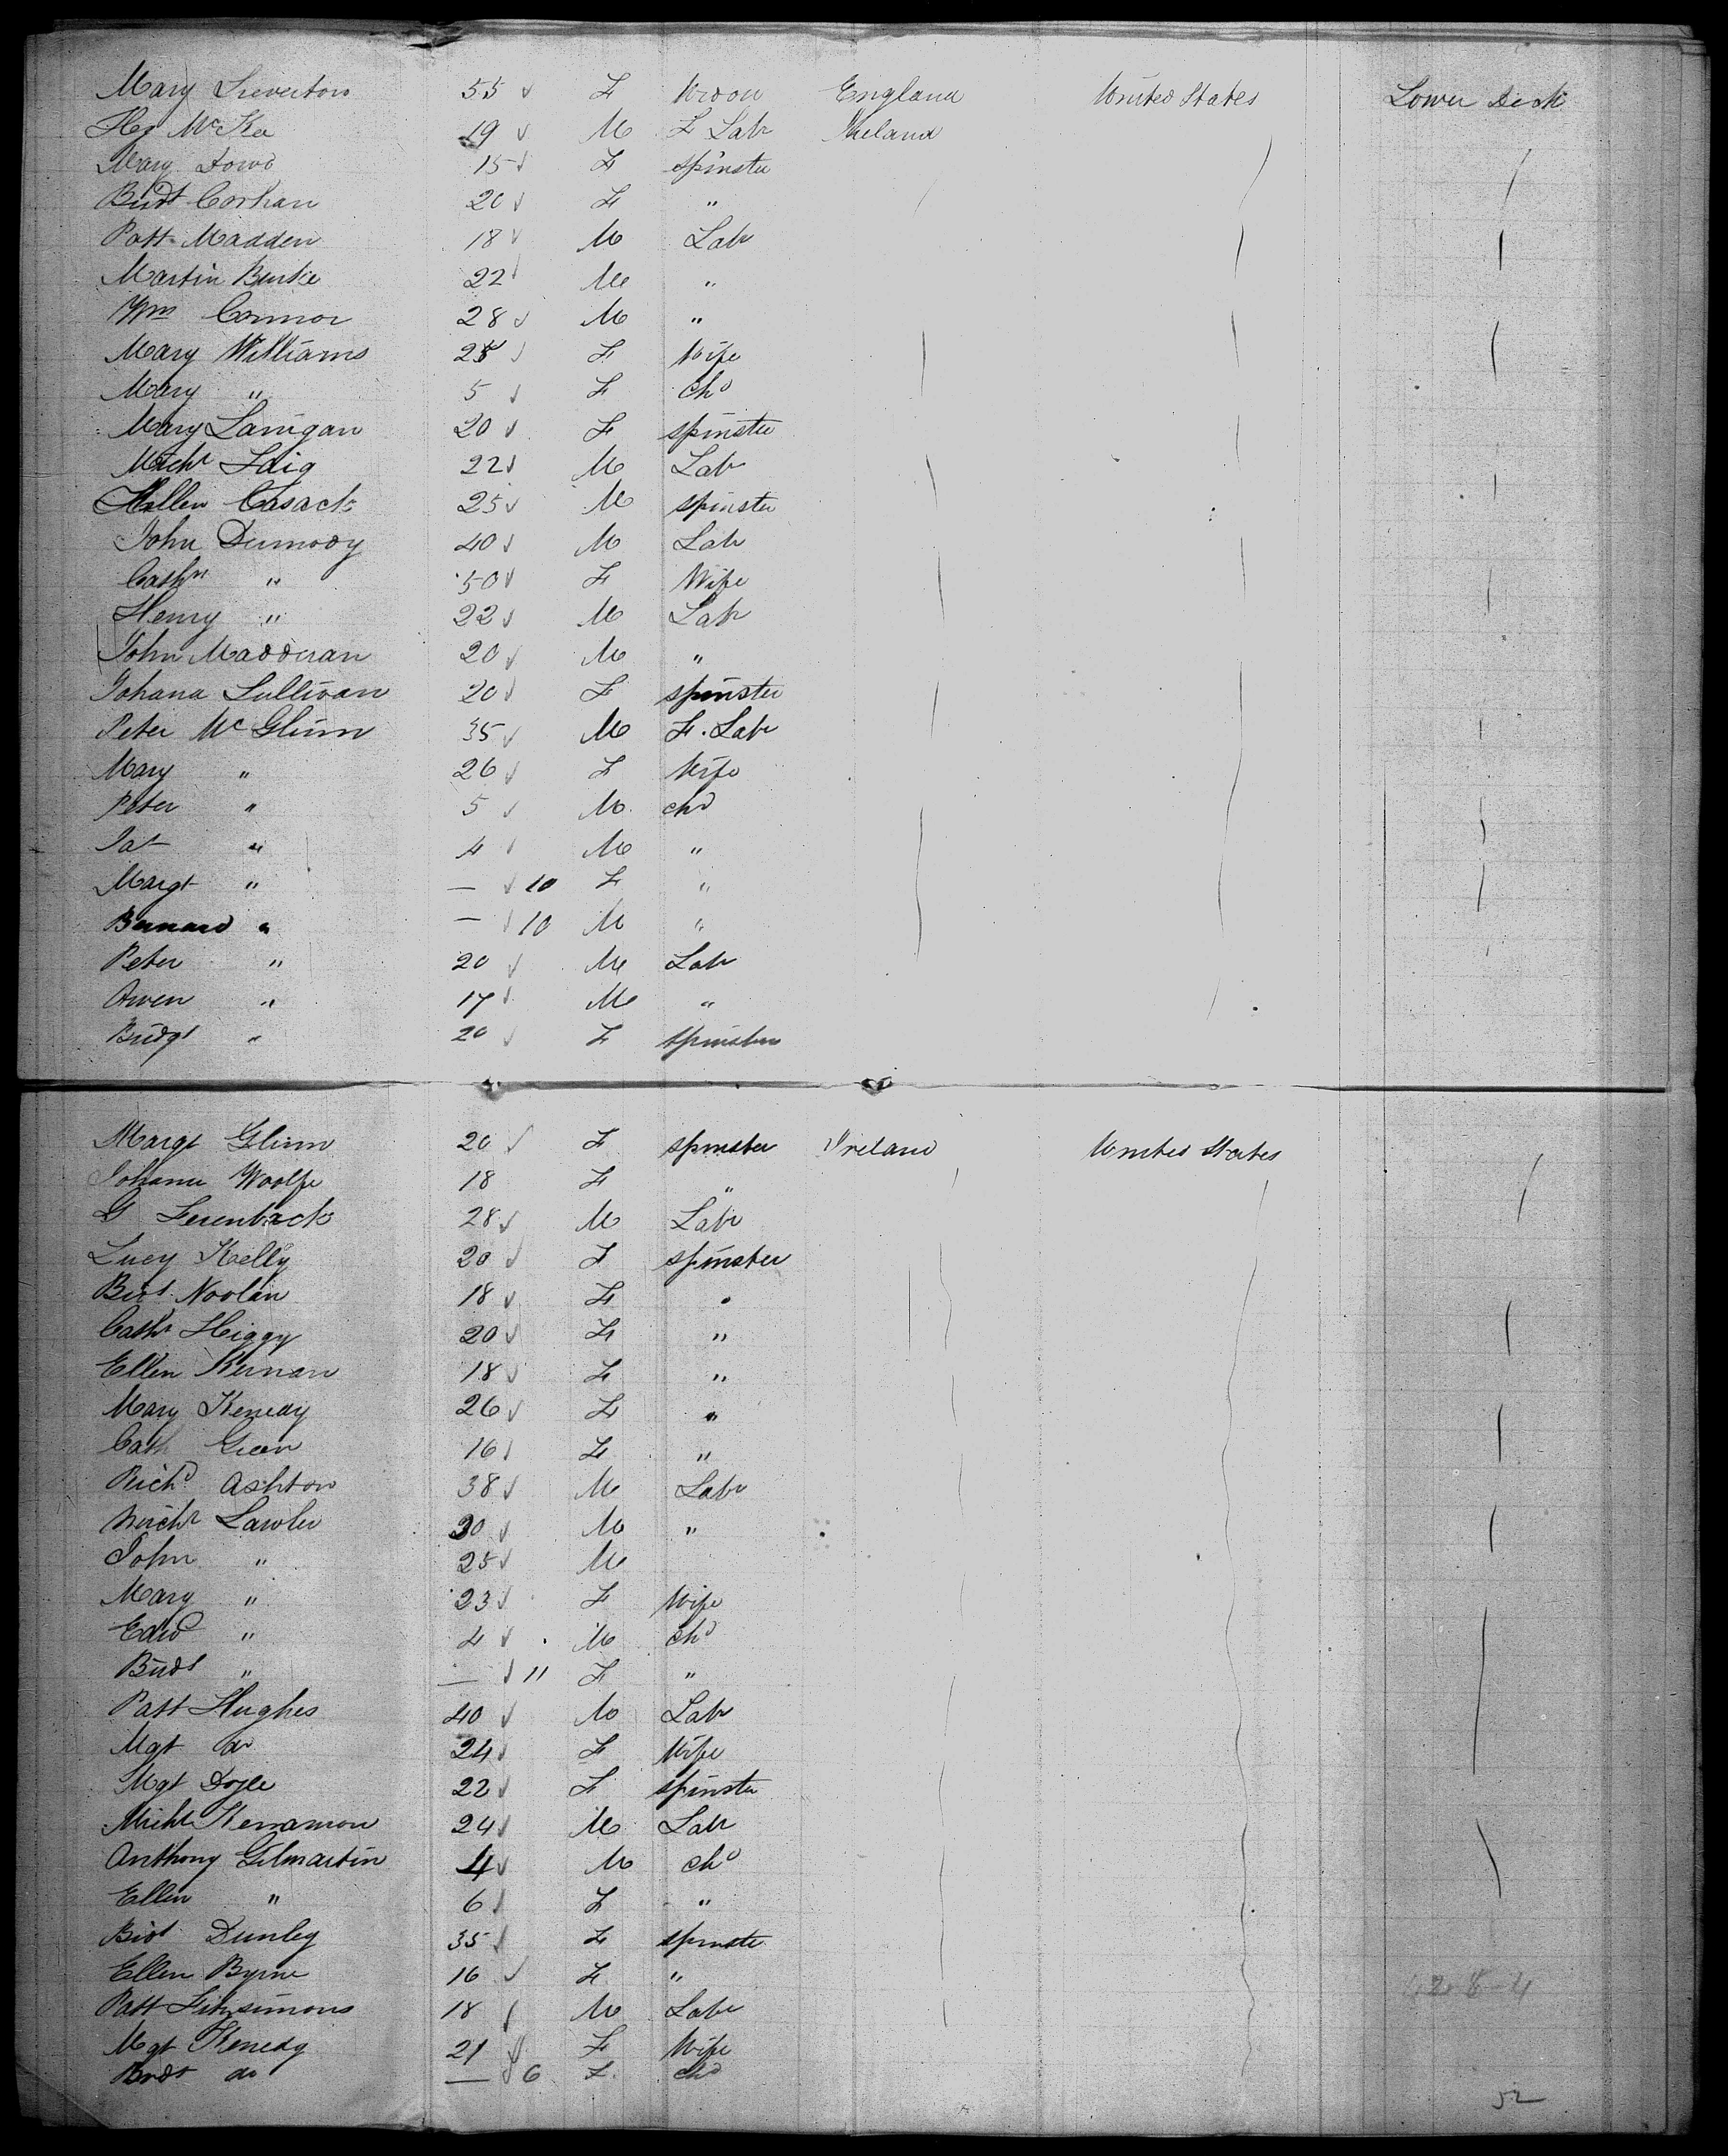 Mary Leverton 55 F Widow England United States Lower Deck
Hy McKee 19 M F Labr Ireland
Mary Dowd 15 F spinster
Bridt Corhan 20 F "
Patt Madden 18 M Labr
Martin Burke 22 M "
Wm Connor 28 M "
Mary Williams 25 F Wife
Mary " 5 F chd
Mary Lanigan 20 F spinster
Michl 22 M Labr
Hellen Casack 25 M spinster
John Dunnody 40 M Labr
Cathn " 50 F Wife
Henry " 22 M Labr
John Madderan 20 M "
Johana Sullivan 20 F spinster
Peter McGlinn 35 M F. Labr
Mary " 26 F Wife
Peter " 5 M chd
Pat " 4 M "
Margt " — 10 F "
Bernard " — 10 M "
Peter " 20 M Labr
Owen " 17 M "
Bridgt " 20 F spinster
Margt Glinn 20 F spinster Ireland United States
Johana Woolfe 18 F "
G Ferenback 28 M Labr
Lucy Kelly 20 F spinster
Bridt Noolan 18 F "
Cathr Higgy 20 F "
Ellen Kernan 18 F "
Mary Kenedy 26 F "
Cath Green 16 F "
Richd Ashton 38 M Labr
Michl Lawler 30 M "
John " 25 M
Mary " 23 F Wife
Edwd " 4 M chd
Bridt " — 11 F "
Patt Hughes 40 M Labr
Mgt do 24 F Wife
Mgt Doyle 22 F spinster
Michl 24 M Labr
Anthony Gilmartin 4 M chd
Ellen " 6 F "
Bridt Dunley 35 F spinster
Ellen Byrne 16 F "
Patt Fitzsimons 18 M Labr
Mgt Kenedy 21 F Wife
Bridt do — 6 F chd
52